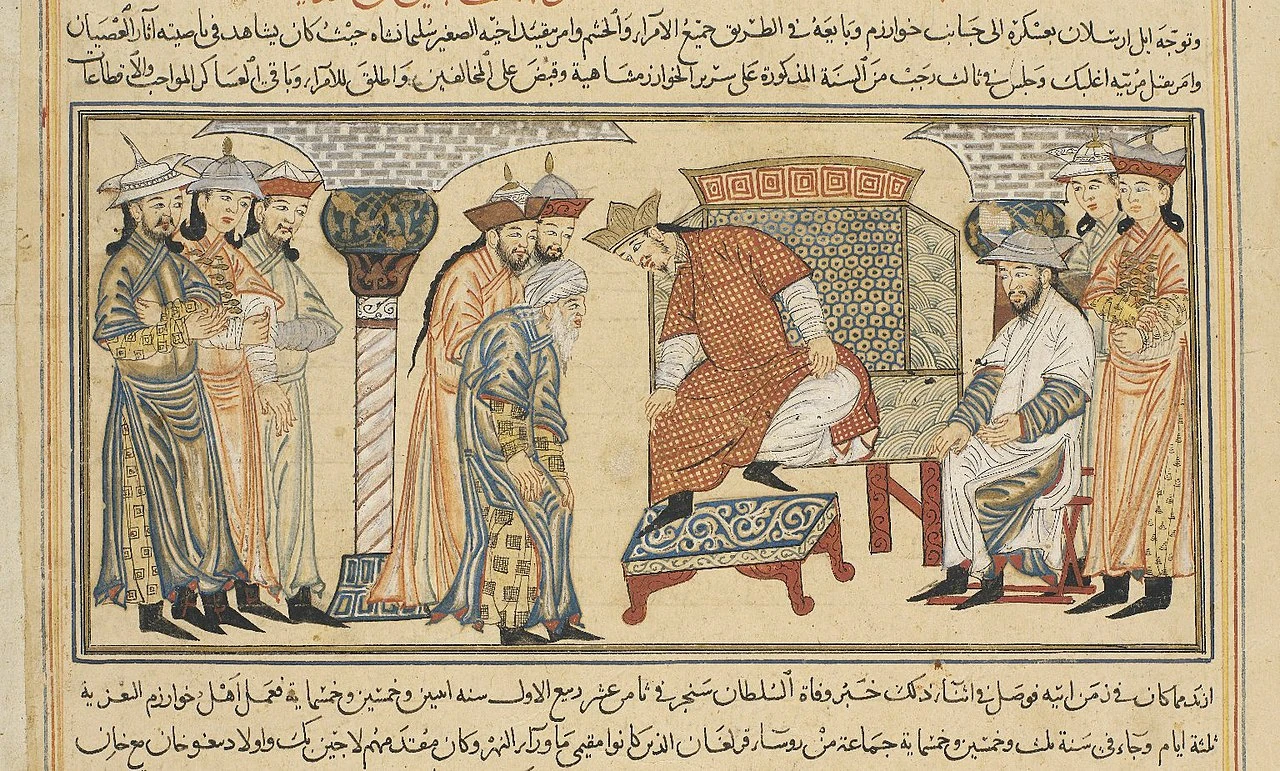 وتوجّه ايل ارسلان بعسكره الى جانب خوارزم وبايعه في الطريق جميع الامرآء والحشم وامر بتقييد اخيه الصغير سليمانشاه حيث كان يشاهد في ناصيته آثار العصيان
وامر بقتل مربّيه اغلبك وجلس في ثالث رجب من السنة المذكورة على سرير الخوارزمشاهية وقبض على المخالفين واطلق للامرآء وباقي العساكر المواجب والاقطاعات
ازيد مما كان في زمن ابيه فوصل في اثنآء ذلك خبر وفاة السلطان سنجر في ثامن عشر ربيع الاول سنه اثنين وخمسين وخمسماية فعمل اهل خوارزم التعزية
ثلثة ايام وجاء في سنة ثلث وخمسين وخمسماية جماعة من روسآء قرلغان الذين كانوا مقيمي ماورآء النهر وكان مقتدمهم لاجين بك واولاد خان مع خان